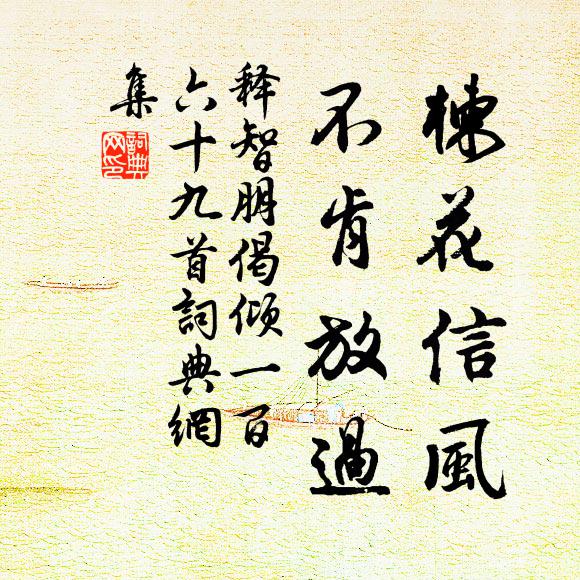 楝花信風
不肯放過
释智朋偈倾一百
六十九首詞典網
集
詞典
网印